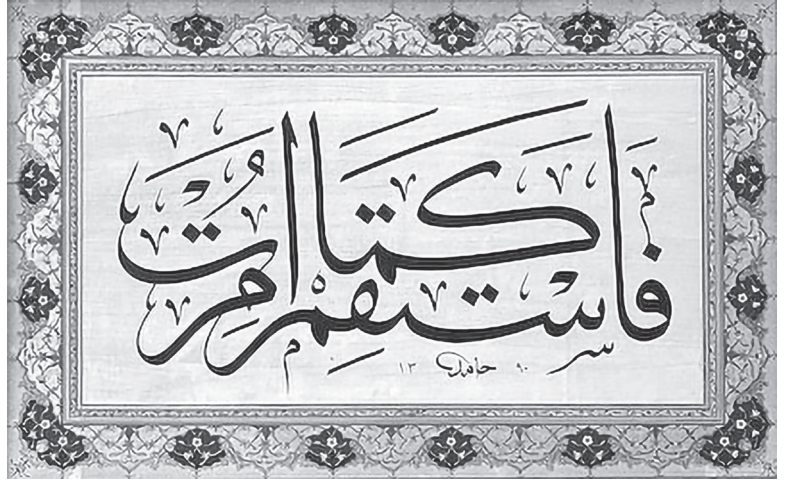 فَاسْتَقِمْ كَمَا أُمِرْتَ
حامد ١٣٩٠